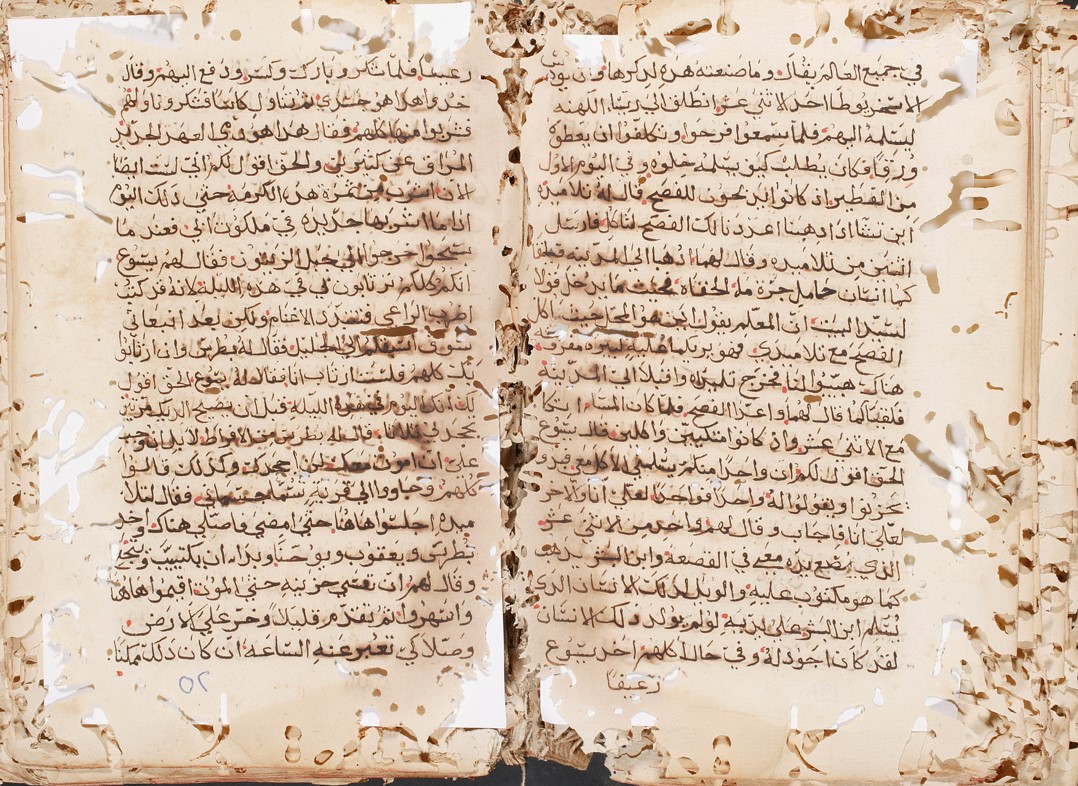 في جميع العالم يقال وما صنعته هذه لذكرها وان يودس
الاسخريوطا احد الاثني عشر انطلق الى ريسا اللهنه
ليسلمه اليهم فلما سمعوا فرحوا وتكلفوا ان يعطوه
ورقا فكان يطلب كيف يسلمه خلوه وفي اليوم الاول
من الفطير اذ كانوا يدبحون للفصح قال له تلاميده
اين تشا ادا دهبنا اعددنا لك الفصح لتاكل فارسل
اثنين من تلاميده وقال لهما ادهبا الى المدينه
كما انسان حامل جرة ما قولا
لسيد البيت ان المعلم يقول اين هو المحل حيث اكل
الفصح مع تلاميدي فهو يريكما
هناك هييوا لنا فخرج تلميداه واقبلا الى المدينة
فلقيا كما قال لهما واعدا الفصح فلما كان المسا
مع الاثني عشر وان كانوا متكيين واكلين قال يسوع
الحق اقول لكم ان واحدا منكم يسلمني الاكل معي
يحزنوا ويقولوا له واحدا فواحدا لعلي انا والاخر
لعلي انا فاجاب وقال لهم واحد من الاثني عشر
الذي يضع يده معي في القصعة وابن البشر
كما هو مكتوب عليه والويل لدلك الانسان الدي
يسلم ابن البشر على يديه لو لم يولد دلك الانسان
لقد كان اجود له وفي حال اكلهم اخد يسوع
رغيفا
رغيفا فلما شكر وبارك وكسر ودفع اليهم وقال
خدوا هدا هو جسدي ثم تناول كاسا فشكر وناولهم
فشربوا منها كلهم وقال هدا هو دمي العهد الحديد
المراق عن كثيرين والحق اقول لكم اني لست ايضا
الان اشرب من ثمرة هده الكرمه حتى دلك اليوم
ادا ما اشربها جديده في ملكوت ابي فعند ما
سبحوا خرجوا الى جبل الزيتون فقال لهم يسوع
انكم كلكم ترتابون بي في هده الليلة لانه قد كتب
اضرب الراعي فتبدد الاغنام ولكن بعد انبعاثي
سوف اسبقكم الى الجليل فقال له بطرس وان ارتابوا
بك كلهم فلست ارتاب انا فقال له يسوع الحق اقول
لك انك اليوم في هده الليلة قبل ان يصيح الديك مرتين
تجحدني قال له بطرس
على ان اموت معك لن اجحدك وكدلك قالوا
كلهم وجاووا الى قرية فقال لتلا
ميده اجلسوا هاهنا حتى امضي واصلي هناك واخد
بطرس ويعقوب ويوحنا وبدا ان يكتيب
وقال لهم ان نفسي حزينه حتى الموت اقيموا هاهنا
واسهروا ثم تقدم قليلا وخر على الارض
وصلا كي تعبر عنه الساعه ان كان دلك ممكنا
٥٢